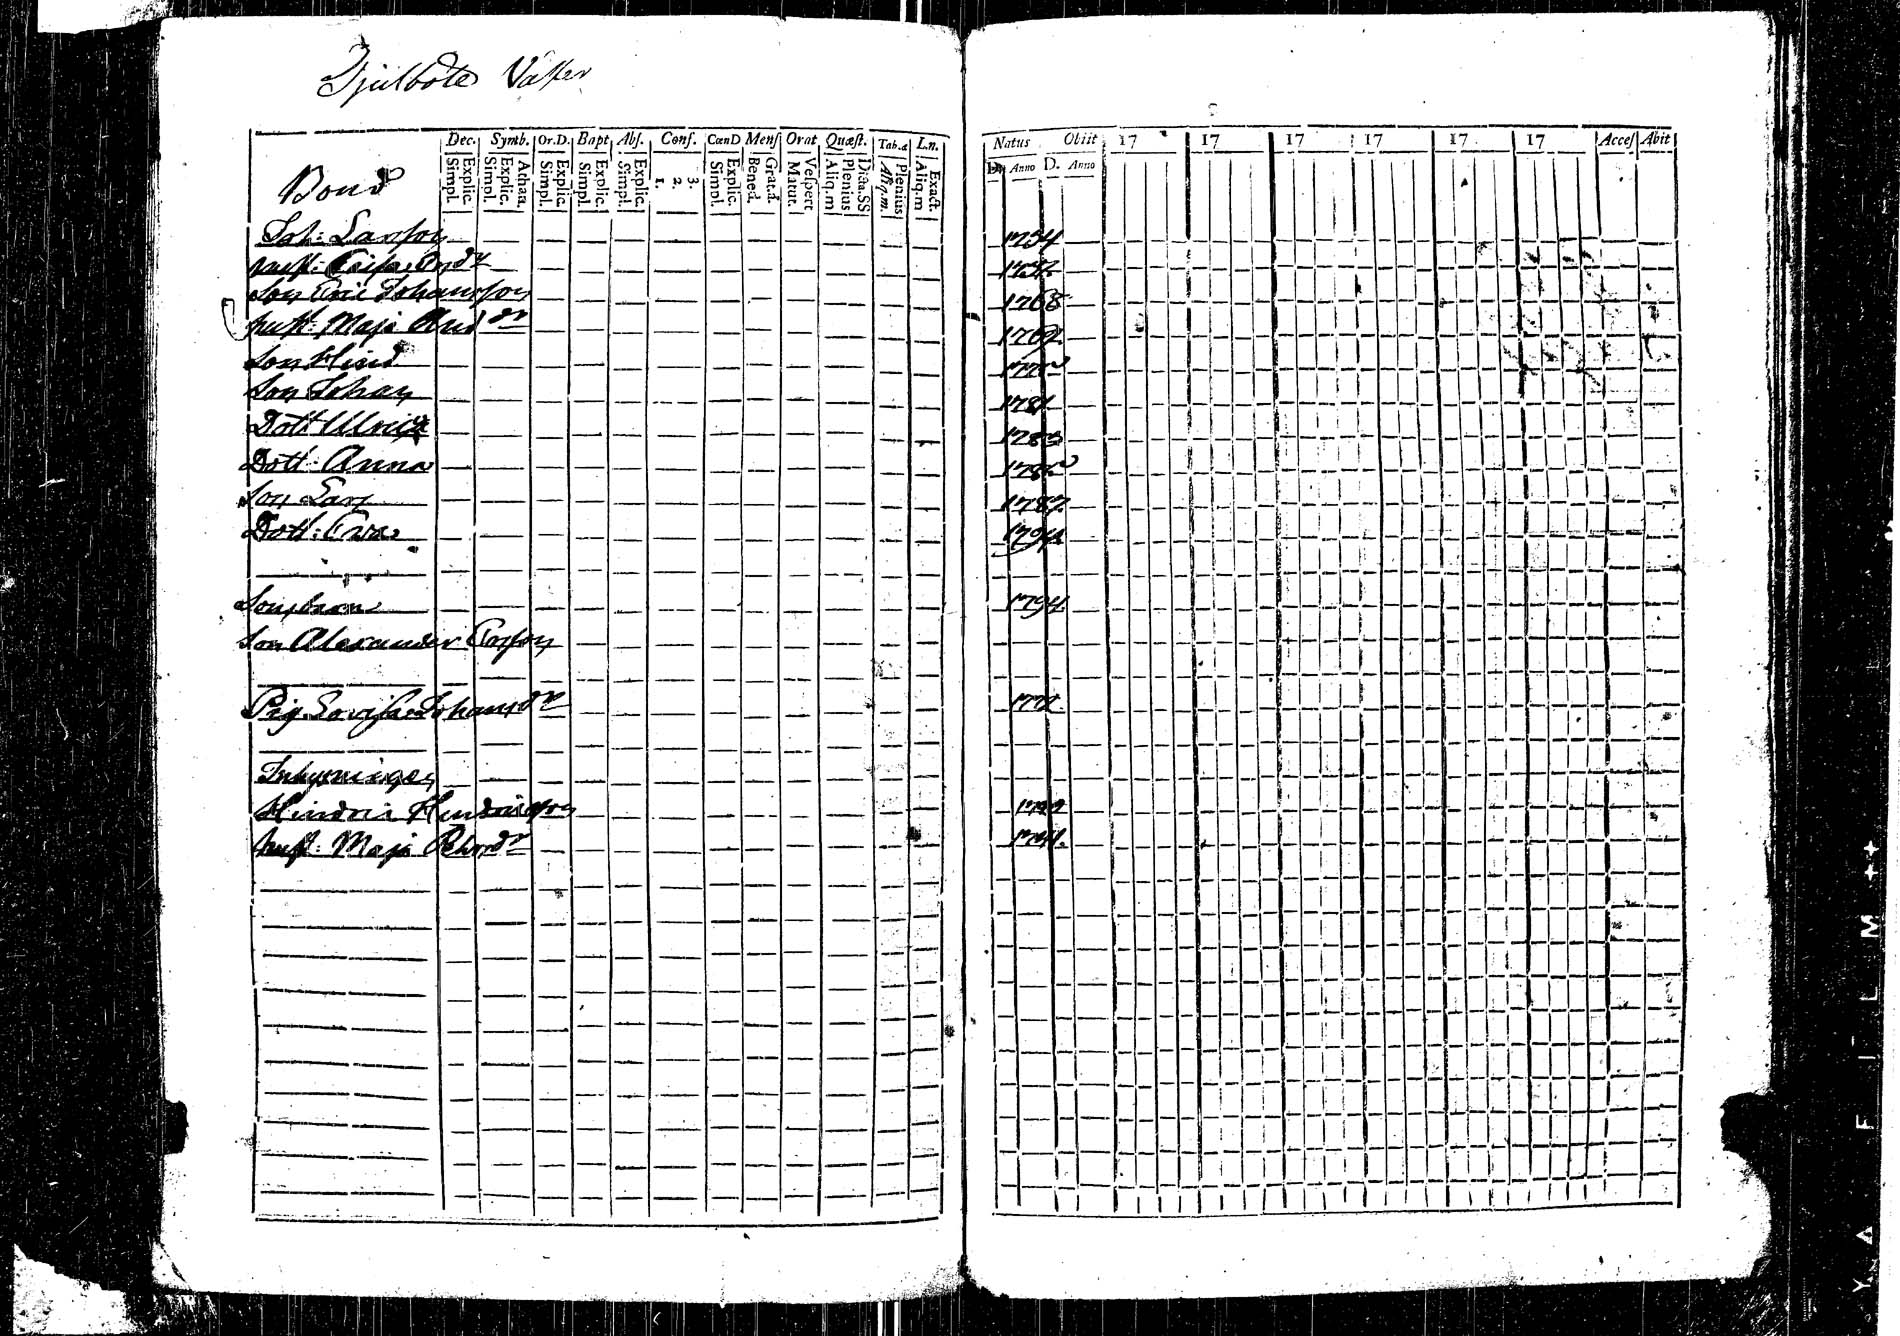 Djulböte Väster
Dec. Symb. Or.D. Bapt Abs. Conf. CœnD Mens Orat Quæst. Tab.æ L.n.
Explic. Simpl. Athan. Explic. Simpl. Explic. Simpl. Explic. Simpl. Explic. Simpl. 3. 2. 1. Explic. Simpl. Grat.d. Bened. Vespert Matut. Dicta.SS Plenius Aliq.m Plenius Aliq.m. Exact. Aliq.m
Natus Obiit 17 17 17 17 17 17 Acces Abit
D. Anno D. Anno
Bond
Joh: Larsson 1734
hust: Caisa And dr
Son Eric Johansson 1768
hust: Maja And dr 1769
Son Hind
Son Johan 1781
Dott Ulrica 1783
Dott: Anna
Son Lars 1787
Dott: Eva 1794
Sonsbarn 1794
Son Alexander Ersson
Pig. Lovisa Johans dr 1772
Inhysningen
Hindric Hindricsson
hust: Maja 1741.
YVA FILM ++